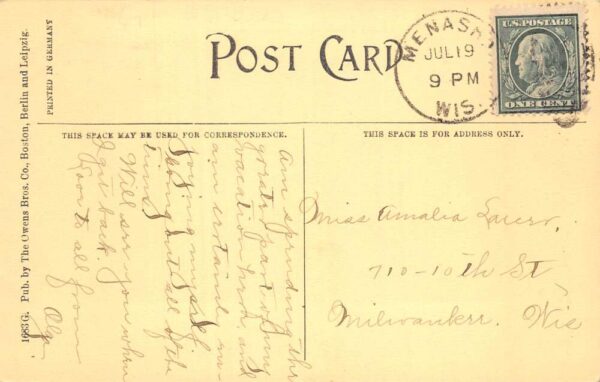 POST CARD
MENASHA
JUL 19
9 PM
WIS.
U.S. POSTAGE
ONE CENT
THIS SPACE MAY BE USED FOR CORRESPONDENCE.
THIS SPACE IS FOR ADDRESS ONLY.
PRINTED IN GERMANY
1683 G. Pub. by The Owens Bros. Co., Boston, Berlin and Leipzig.
Am spending the
greater part of my
vacation here and
am certainly en-
joying myself
being out all of the
time.
Will see you when
I get back.
Love to all from
Olga
Miss Amalia
710-10th St,
Milwaukee. Wis